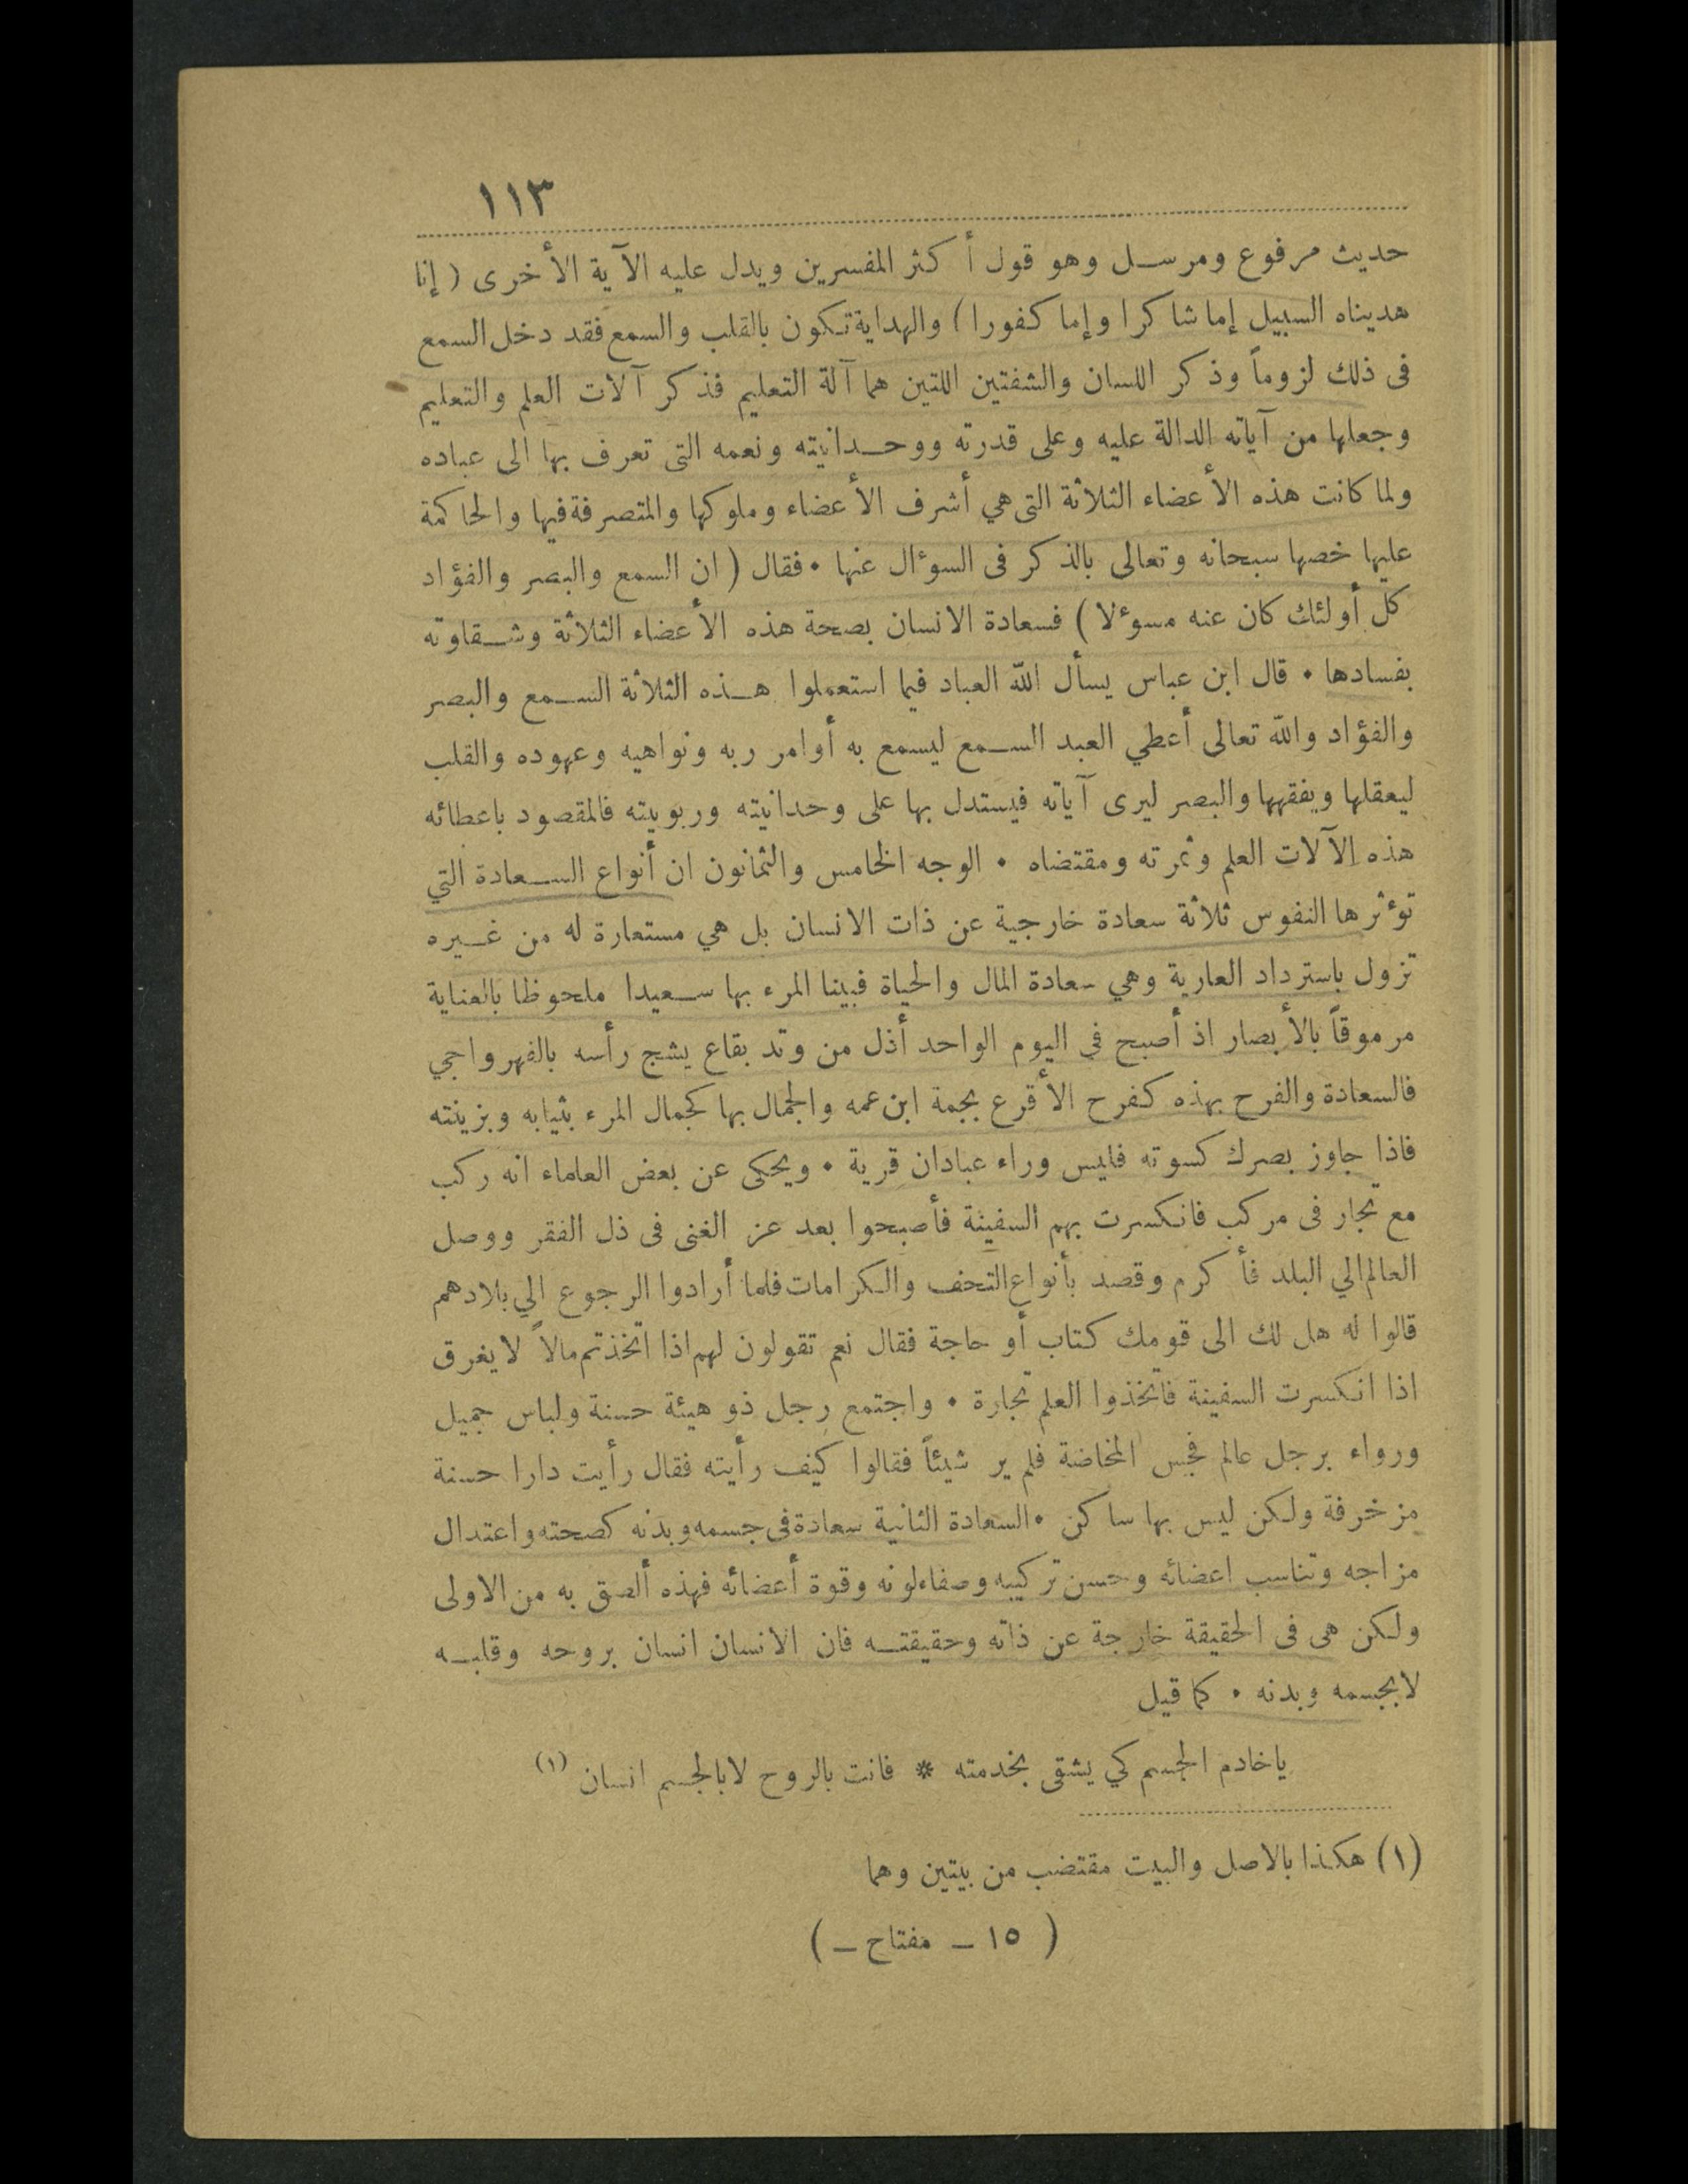 ١١٣
حديث مرفوع ومرسل وهو قول أكثر المفسرين ويدل عليه الآية الأخرى (إنا
هديناه السبيل إما شاكرا وإما كفورا) والهداية تكون بالقلب والسمع فقد دخل السمع
فى ذلك لزوماً وذكر اللسان والشفتين اللتين هما آلة التعليم فذكر آلات العلم والتعليم
وجعلها من آياته الدالة عليه وعلى قدرته ووحدانيته ونعمه التى تعرف بها الى عباده
ولما كانت هذه الأعضاء الثلاثة التى هي أشرف الأعضاء وملوكها والمتصرفة فيها والحاكمة
عليها خصها سبحانه وتعالى بالذكر فى السوءال عنها • فقال (ان السمع والبصر والفؤاد
كل أولئك كان عنه مسوءلا) فسعادة الانسان بصحة هذه الأعضاء الثلاثة وشقاوته
بفسادها • قال ابن عباس يسأل الله العباد فيما استعملوا هذه الثلاثة السمع والبصر
والفؤاد والله تعالى أعطي العبد السمع ليسمع به أوامر ربه ونواهيه وعهوده والقلب
ليعقلها ويفقهها والبصر ليرى آياته فيستدل بها على وحدانيته وربوبيته فالمقصود باعطائه
هذه الآلات العلم وثمرته ومقتضاه • الوجه الخامس والثمانون ان أنواع السعادة التي
توءثرها النفوس ثلاثة سعادة خارجية عن ذات الانسان بل هي مستعارة له من غيره
تزول باسترداد العارية وهي سعادة المال والحياة فبينا المرء بها سعيدا ملحوظا بالعناية
مرموقاً بالأبصار اذ أصبح في اليوم الواحد أذل من وتد بقاع يشج رأسه بالفهر واجي
فالسعادة والفرح بهذه كفرح الأقرع بجمة ابن عمه والجمال بها كجمال المرء بثيابه وبزينته
فاذا جاوز بصرك كسوته فليس وراء عبادان قرية • ويحكى عن بعض العلماء انه ركب
مع تجار فى مركب فانكسرت بهم السفينة فأصبحوا بعد عز الغنى فى ذل الفقر ووصل
العالم الي البلد فأكرم وقصد بأنواع التحف والكرامات فلما أرادوا الرجوع الي بلادهم
قالوا له هل لك الى قومك كتاب أو حاجة فقال نعم تقولون لهم اذا اتخذتم مالاً لا يغرق
اذا انكسرت السفينة فاتخذوا العلم تجارة • واجتمع رجل ذو هيئة حسنة ولباس جميل
ورواء برجل عالم فجس المخاضة فلم ير شيئاً فقالوا كيف رأيته فقال رأيت دارا حسنة
مزخرفة ولكن ليس بها ساكن • السعادة الثانية سعادة فى جسمه وبدنه كصحته واعتدال
مزاجه وتناسب اعضائه وحسن تركيبه وصفاء لونه وقوة أعضائه فهذه ألصق به من الاولى
ولكن هى فى الحقيقة خارجة عن ذاته وحقيقته فان الانسان انسان بروحه وقلبه
لا بجسمه وبدنه • كما قيل
ياخادم الجسم كي يشقى بخدمته * فانت بالروح لابالجسم انسان (١)
(١) هكذا بالاصل والبيت مقتضب من بيتين وهما
( ١٥ ـ مفتاح ـ )